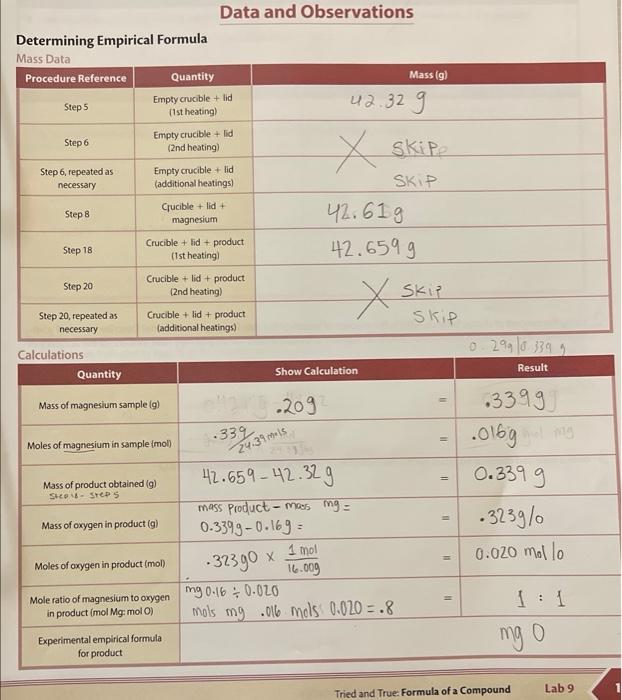 Data and Observations
Determining Empirical Formula
Mass Data
Procedure Reference Quantity Mass (g)
Step 5 Empty crucible + lid (1st heating) 42.32 g
Step 6 Empty crucible + lid (2nd heating) X SKIP
Step 6, repeated as necessary Empty crucible + lid (additional heatings) SKIP
Step 8 Crucible + lid + magnesium 42.61g
Step 18 Crucible + lid + product (1st heating) 42.659 g
Step 20 Crucible + lid + product (2nd heating) X SKIP
Step 20, repeated as necessary Crucible + lid + product (additional heatings) SKIP
Calculations
Quantity Show Calculation Result
Mass of magnesium sample (g) .20g = .339g
Moles of magnesium in sample (mol) .339/24.39 mols = .016g
Mass of product obtained (g) Step 18 - Step 5 42.659 - 42.32 g = 0.339 g
Mass of oxygen in product (g) mass product - mass mg = 0.339g - 0.16g = = .323g/o
Moles of oxygen in product (mol) .323gO x 1 mol / 16.00g = 0.020 mol/o
Mole ratio of magnesium to oxygen in product (mol Mg: mol O) mg 0.16 ÷ 0.020 mols mg .016 mols 0.020 = .8 = 1 : 1
Experimental empirical formula for product mg O
Tried and True: Formula of a Compound Lab 9 1